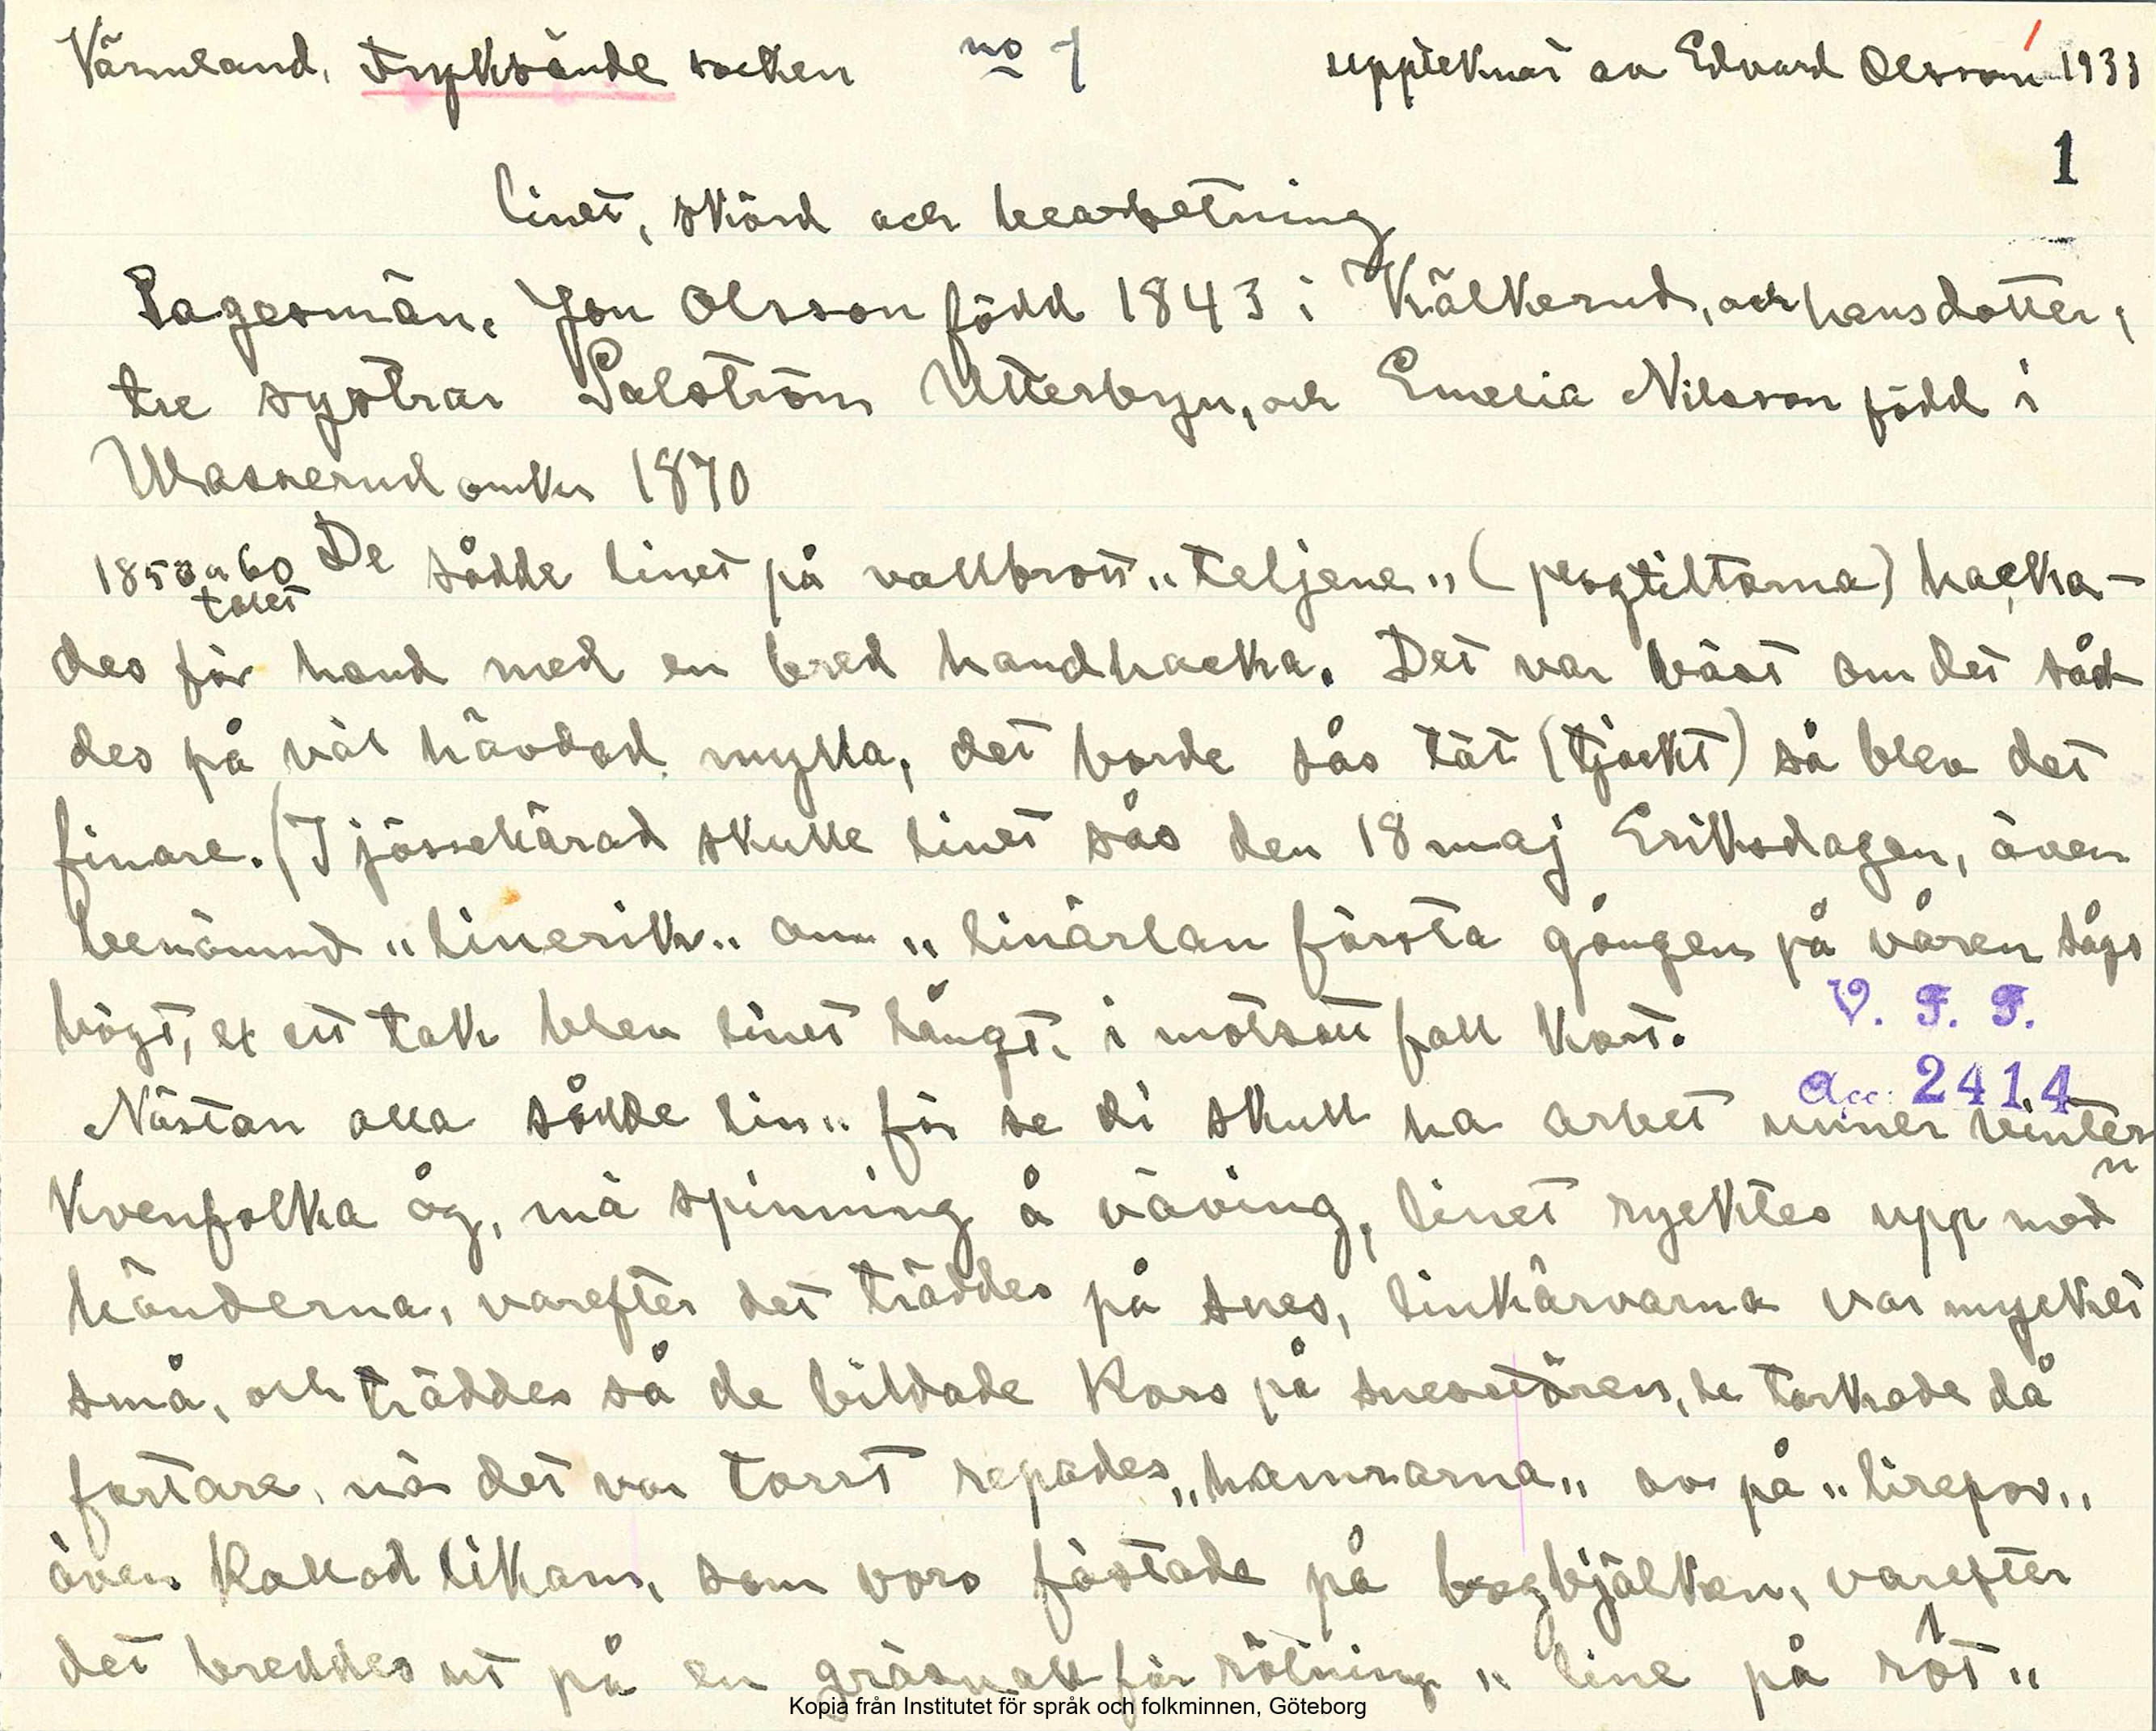 Värmland, Fryksände socken no 1 upptecknat av Edvard Olsson 1933
1
Linet, skörd och bearbetning
Sagesmän. Jon Olsson född 1843 i Kälkerud, och hans dotter,
tre systrar Salström Utterbyn, och Emelia Nilsson född i
Ulasserud omkr 1870
1850 a 60 talet De sådde linet på vallbrott "teljene" (plogtiltorna) hacka-
des för hand med en bred handhacka. Det var bäst om det såd
des på väl hävdad mylla, det borde sås tät (tjockt) så blev det
finare. (I jössehärad skulle linet sås den 18 maj Eriksdagen, även
benämnd "linerik" om "linärlan första gången på våren sågs
högt, ex ett tak blev linet långt, i motsatt fall kort.
V. F. F.
Acc. 2414
Nästan alla sådde lin "för se di skull ha arbet unner vintern
kvenfolka åg, mä spinning å väving, linet rycktes upp med
händerna, varefter det träddes på snes, linkärvarna var mycket
små, och träddes så de bildade kors på snesstören, de torkade då
fortare, när det var torrt repades "hamrarna" av på "lirepor"
även kallad likam, som voro fästade på bogbjälken, varefter
det breddes ut på en gräsvall för rötning "line på röt"
Kopia från Institutet för språk och folkminnen, Göteborg